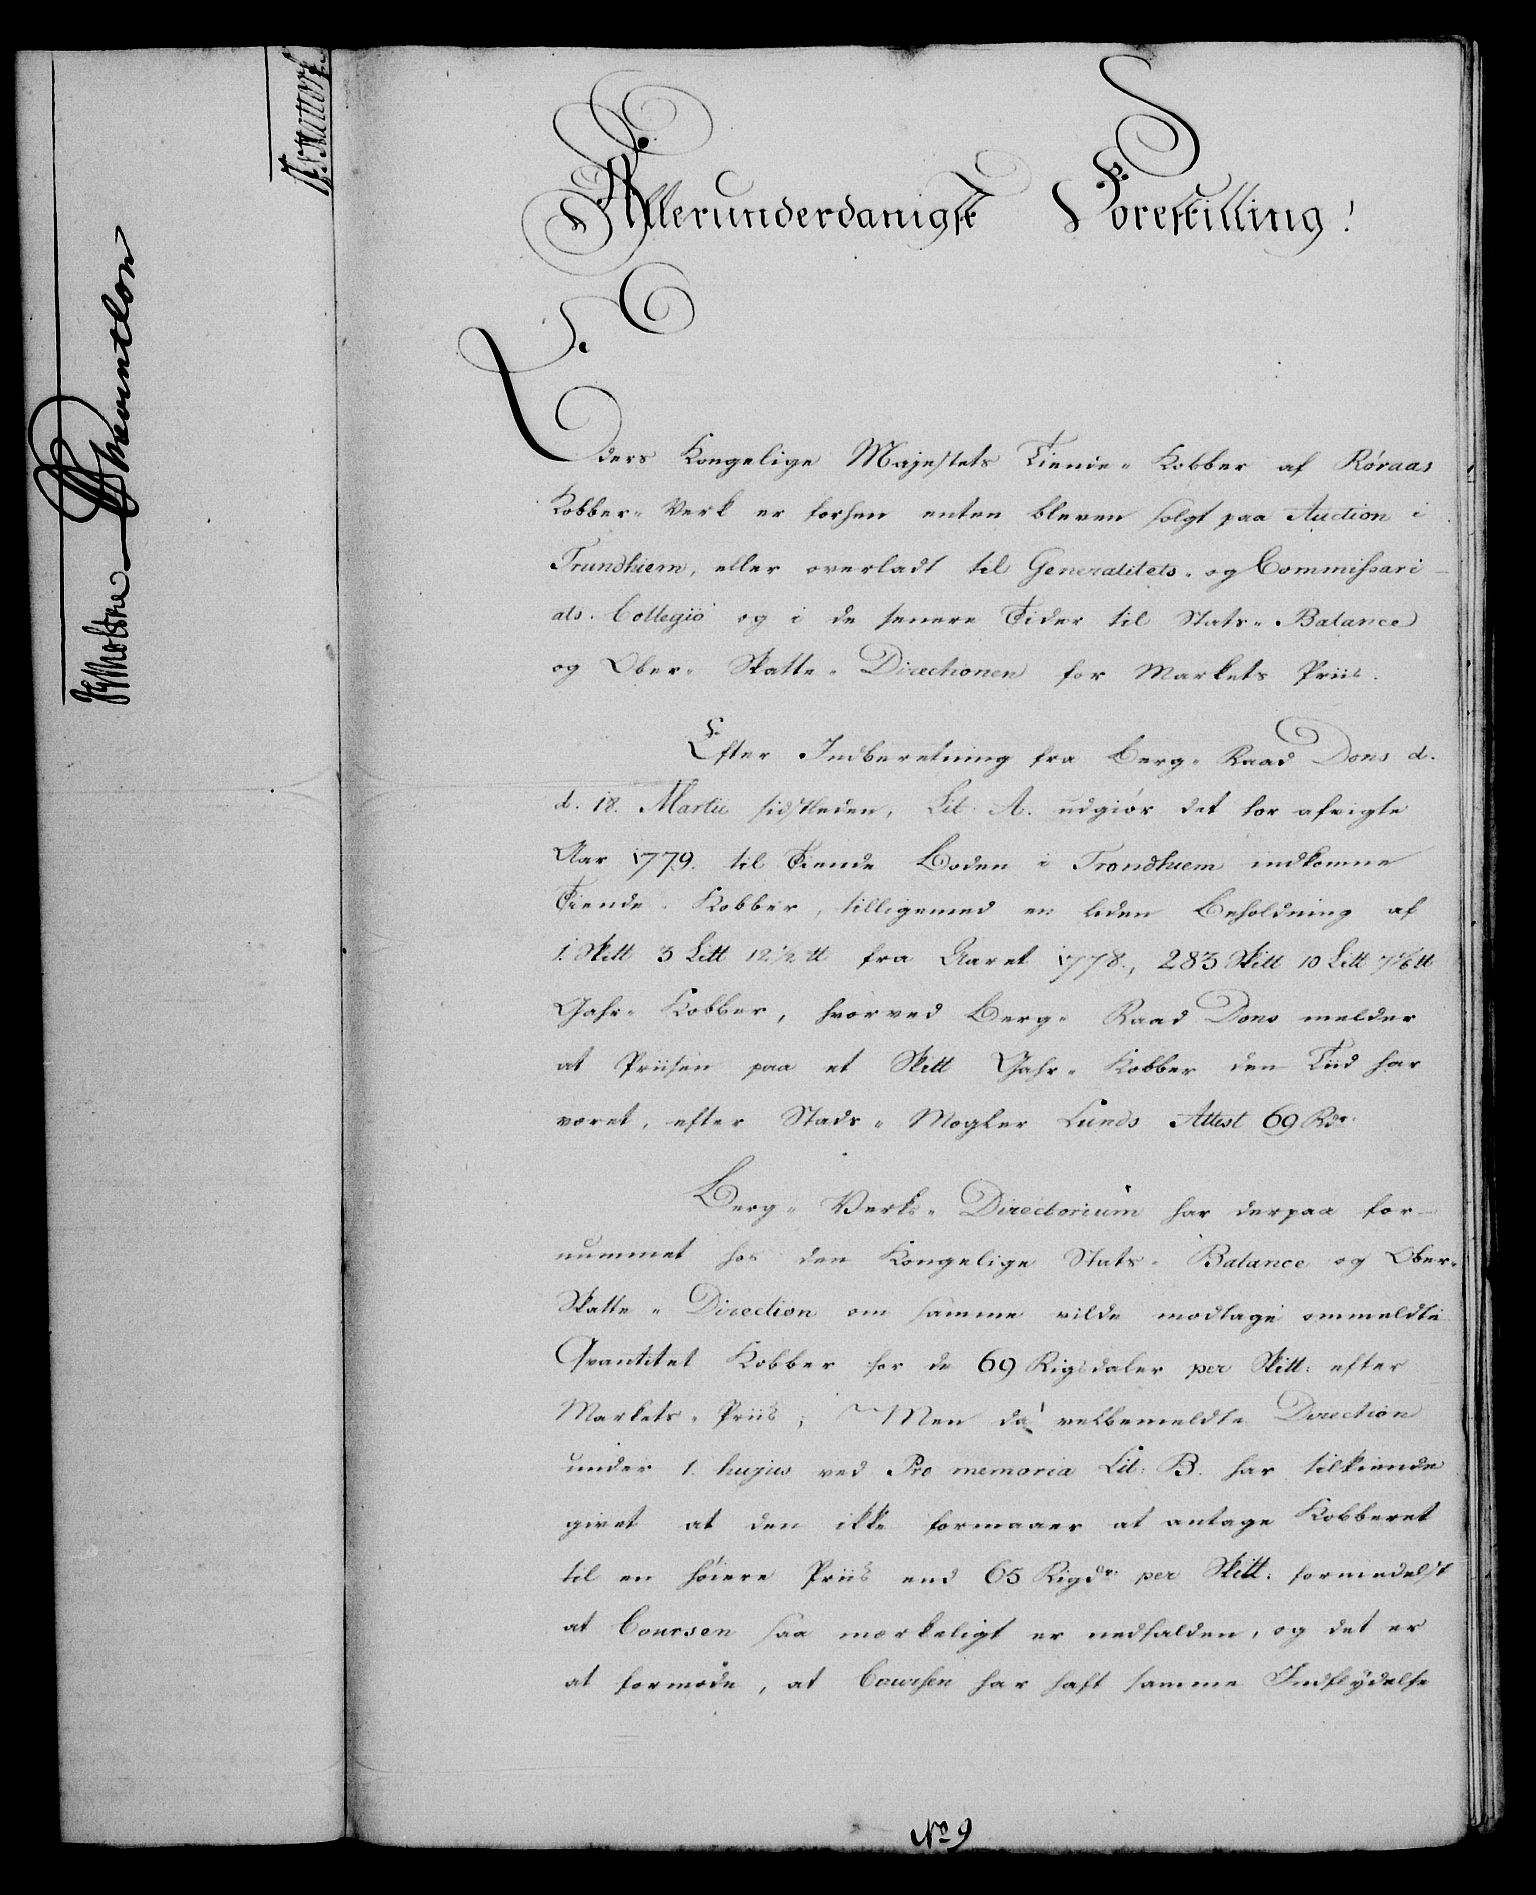 Allerunderdanigst Forestilling!
Eders Kongelige Majestets Tiende-Kobber af Røraas
Kobber-Verk er forhen enten bleven solgt paa Auction i
Trundhiem, eller overladt til Generalitets- og Commissari-
ats-Collegio og i de senere Tider til Stats-Balance
og Ober-Skatte-Directionen for Markets Priis.
Efter Indberetning fra Berg-Raad Dons d.
d. 18. Martii sidstleden, Lit. A. udgiør det for afvigte
Aar 1779. til Tiende Boden i Trondhiem indkomne
Tiende-Kobber, tilligemed en liden Beholdning af
1. Sk℔ 3 L℔ 12½ ℔ fra Aaret 1778., 283 Sk℔ 10 L℔ 7⅙ ℔
Gahr-Kobber, hvorved Berg-Raad Dons melder
at Priisen paa et Sk℔ Gahr-Kobber den Tiid har
været, efter Stads-Mægler Lunds Attest 69 Rdr.
Berg-Verks-Directorium har derpaa for-
nummet hos den Kongelige Stats-Balance og Ober-
Skatte-Direction om samme vilde modtage ommeldte
Qvantitet Kobber for de 69 Rigsdaler per Sk℔: efter
Markets-Priis; Men da velbemeldte Direction
under 1. hujus ved Pro memoria Lit: B. har tilkiende
givet at den ikke formaaer at antage Kobberet
til en høiere Priis end 65 Rigdr. per Sk℔. formedelst
at Coursen saa mærkeligt er nedfalden, og det er
at formode, at Coursen har haft samme Indflydelse
No 9